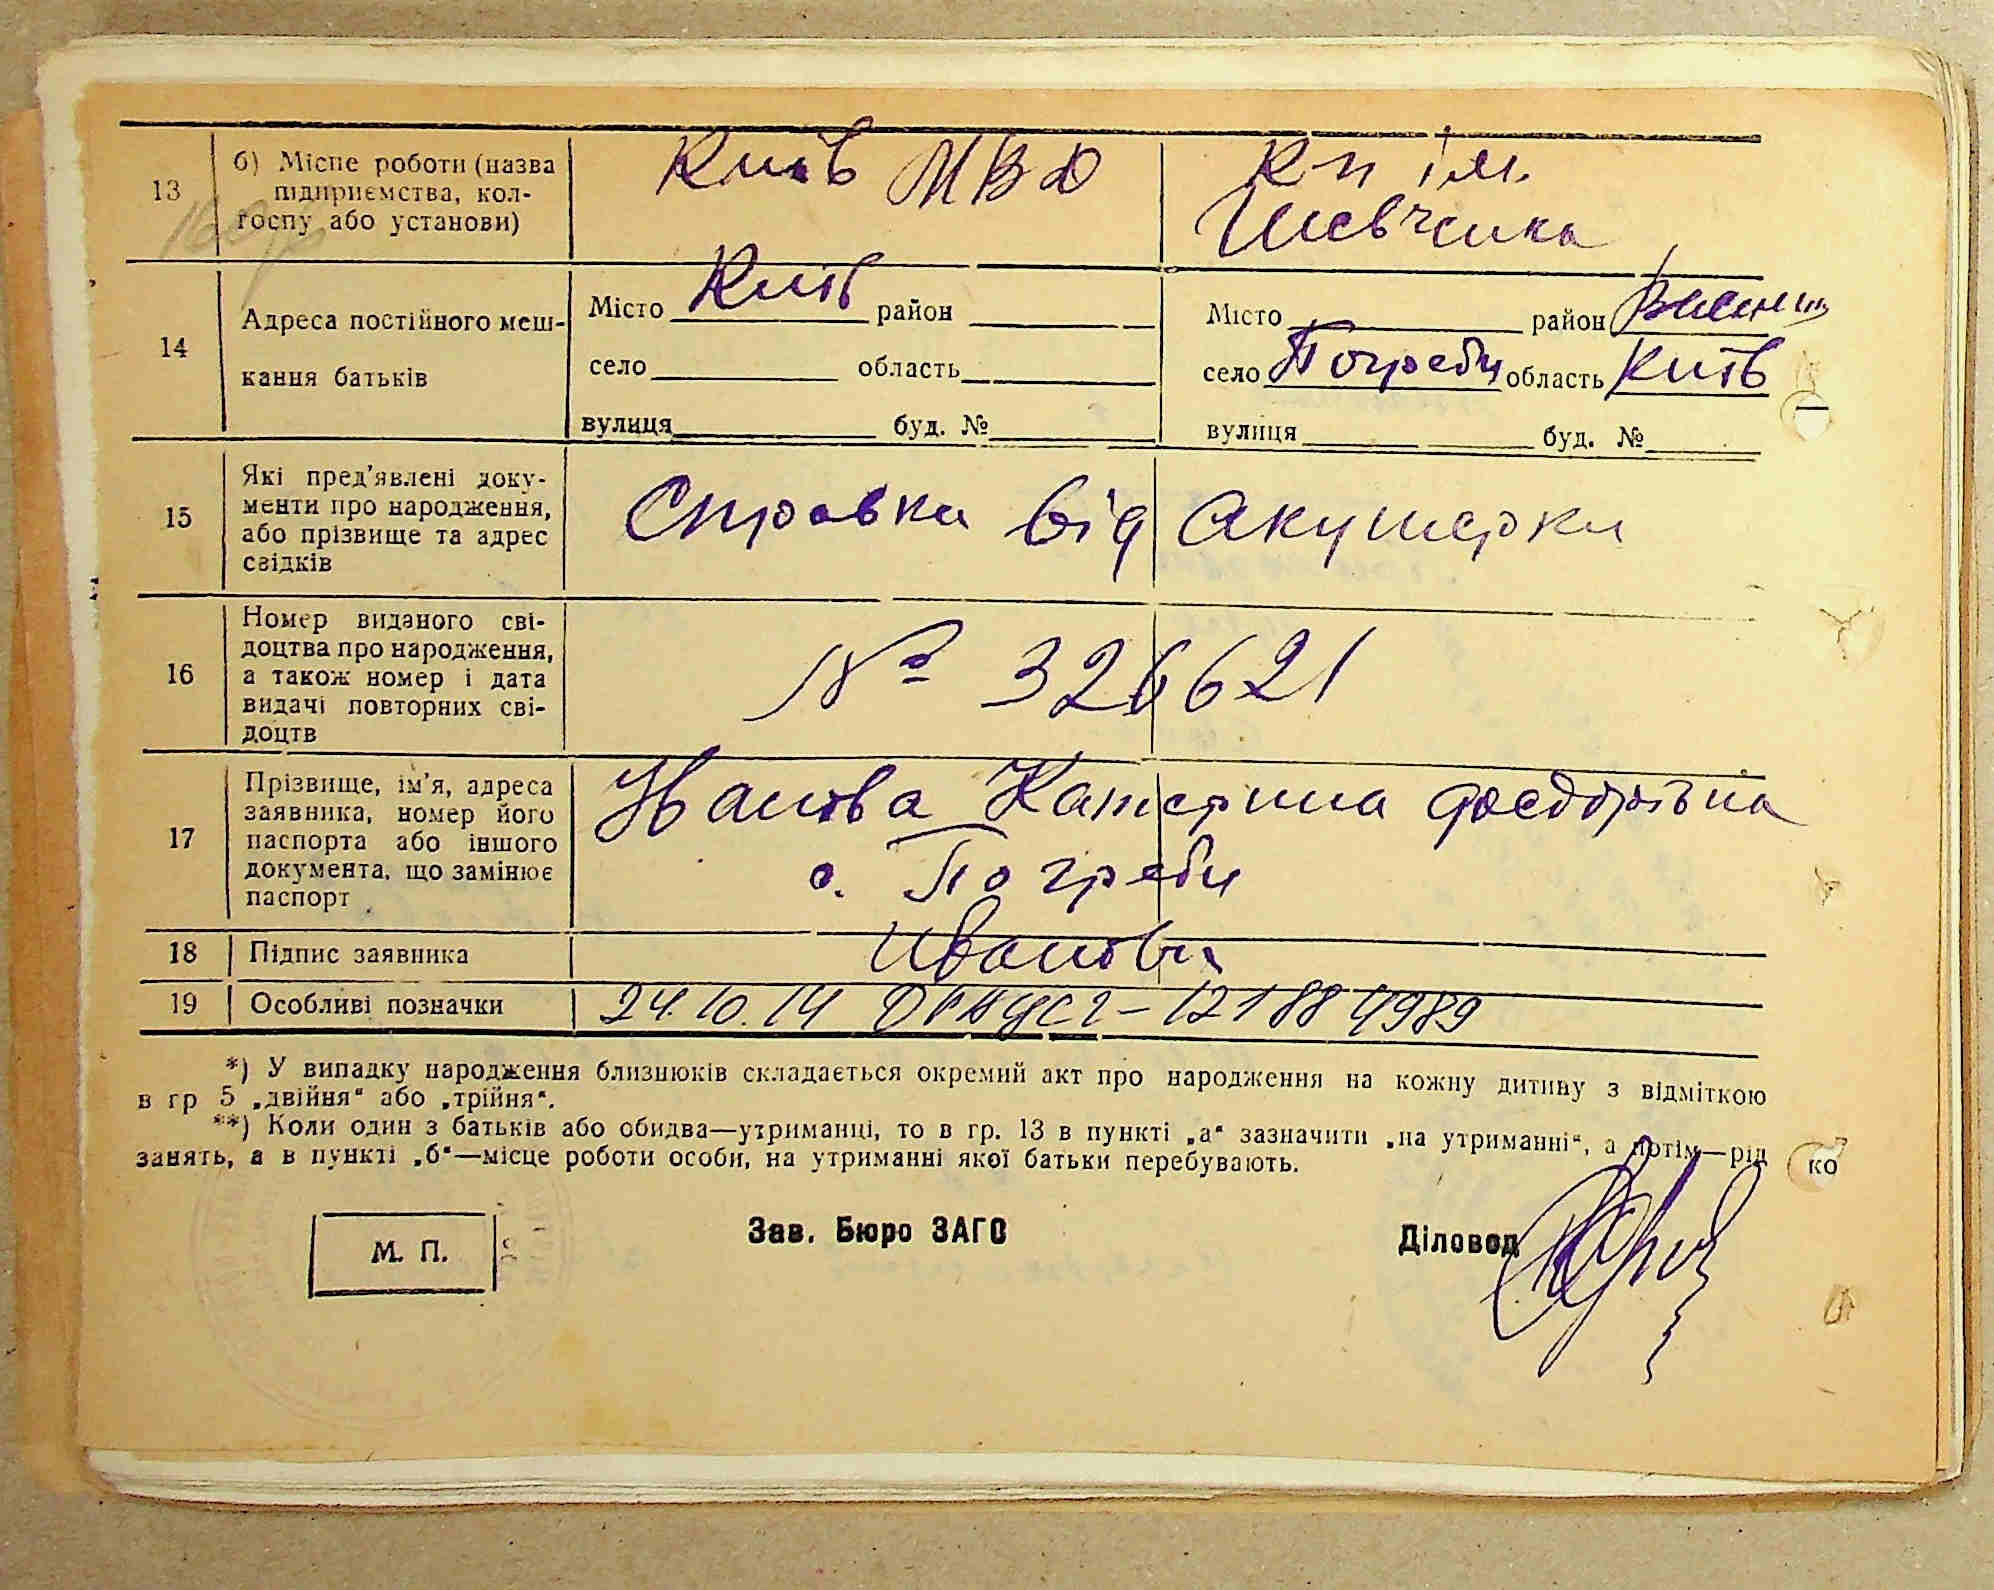 13
б) Місце роботи (назва
підприємства, кол-
госпу або установи)
Київ МВД
Кп ім.
Шевченка
14
Адреса постійного меш-
кання батьків
Місто Київ район
село область
вулиця буд. №
Місто район
село Погреби область Київ
вулиця буд. №
15
Які пред'явлені доку-
менти про народження,
або прізвище та адрес
свідків
Справка від акушерки
16
Номер виданого сві-
доцтва про народження,
а також номер і дата
видачі повторних сві-
доцтв
№ 326621
17
Прізвище, ім'я, адреса
заявника, номер його
паспорта або іншого
документа, що замінює
паспорт
Иванова Катерина Федорівна
с. Погреби
18
Підпис заявника
Иванова
19
Особливі позначки
24.10.14
*) У випадку народження близнюків складається окремий акт про народження на кожну дитину з відміткою
в гр 5 „двійня“ або „трійня“.
**) Коли один з батьків або обидва—утриманці, то в гр. 13 в пункті „а“ зазначити „на утриманні“, а потім—рід
занять, а в пункті „б“—місце роботи особи, на утриманні якої батьки перебувають.
ко
М. П.
Зав. Бюро ЗАГС
Діловод